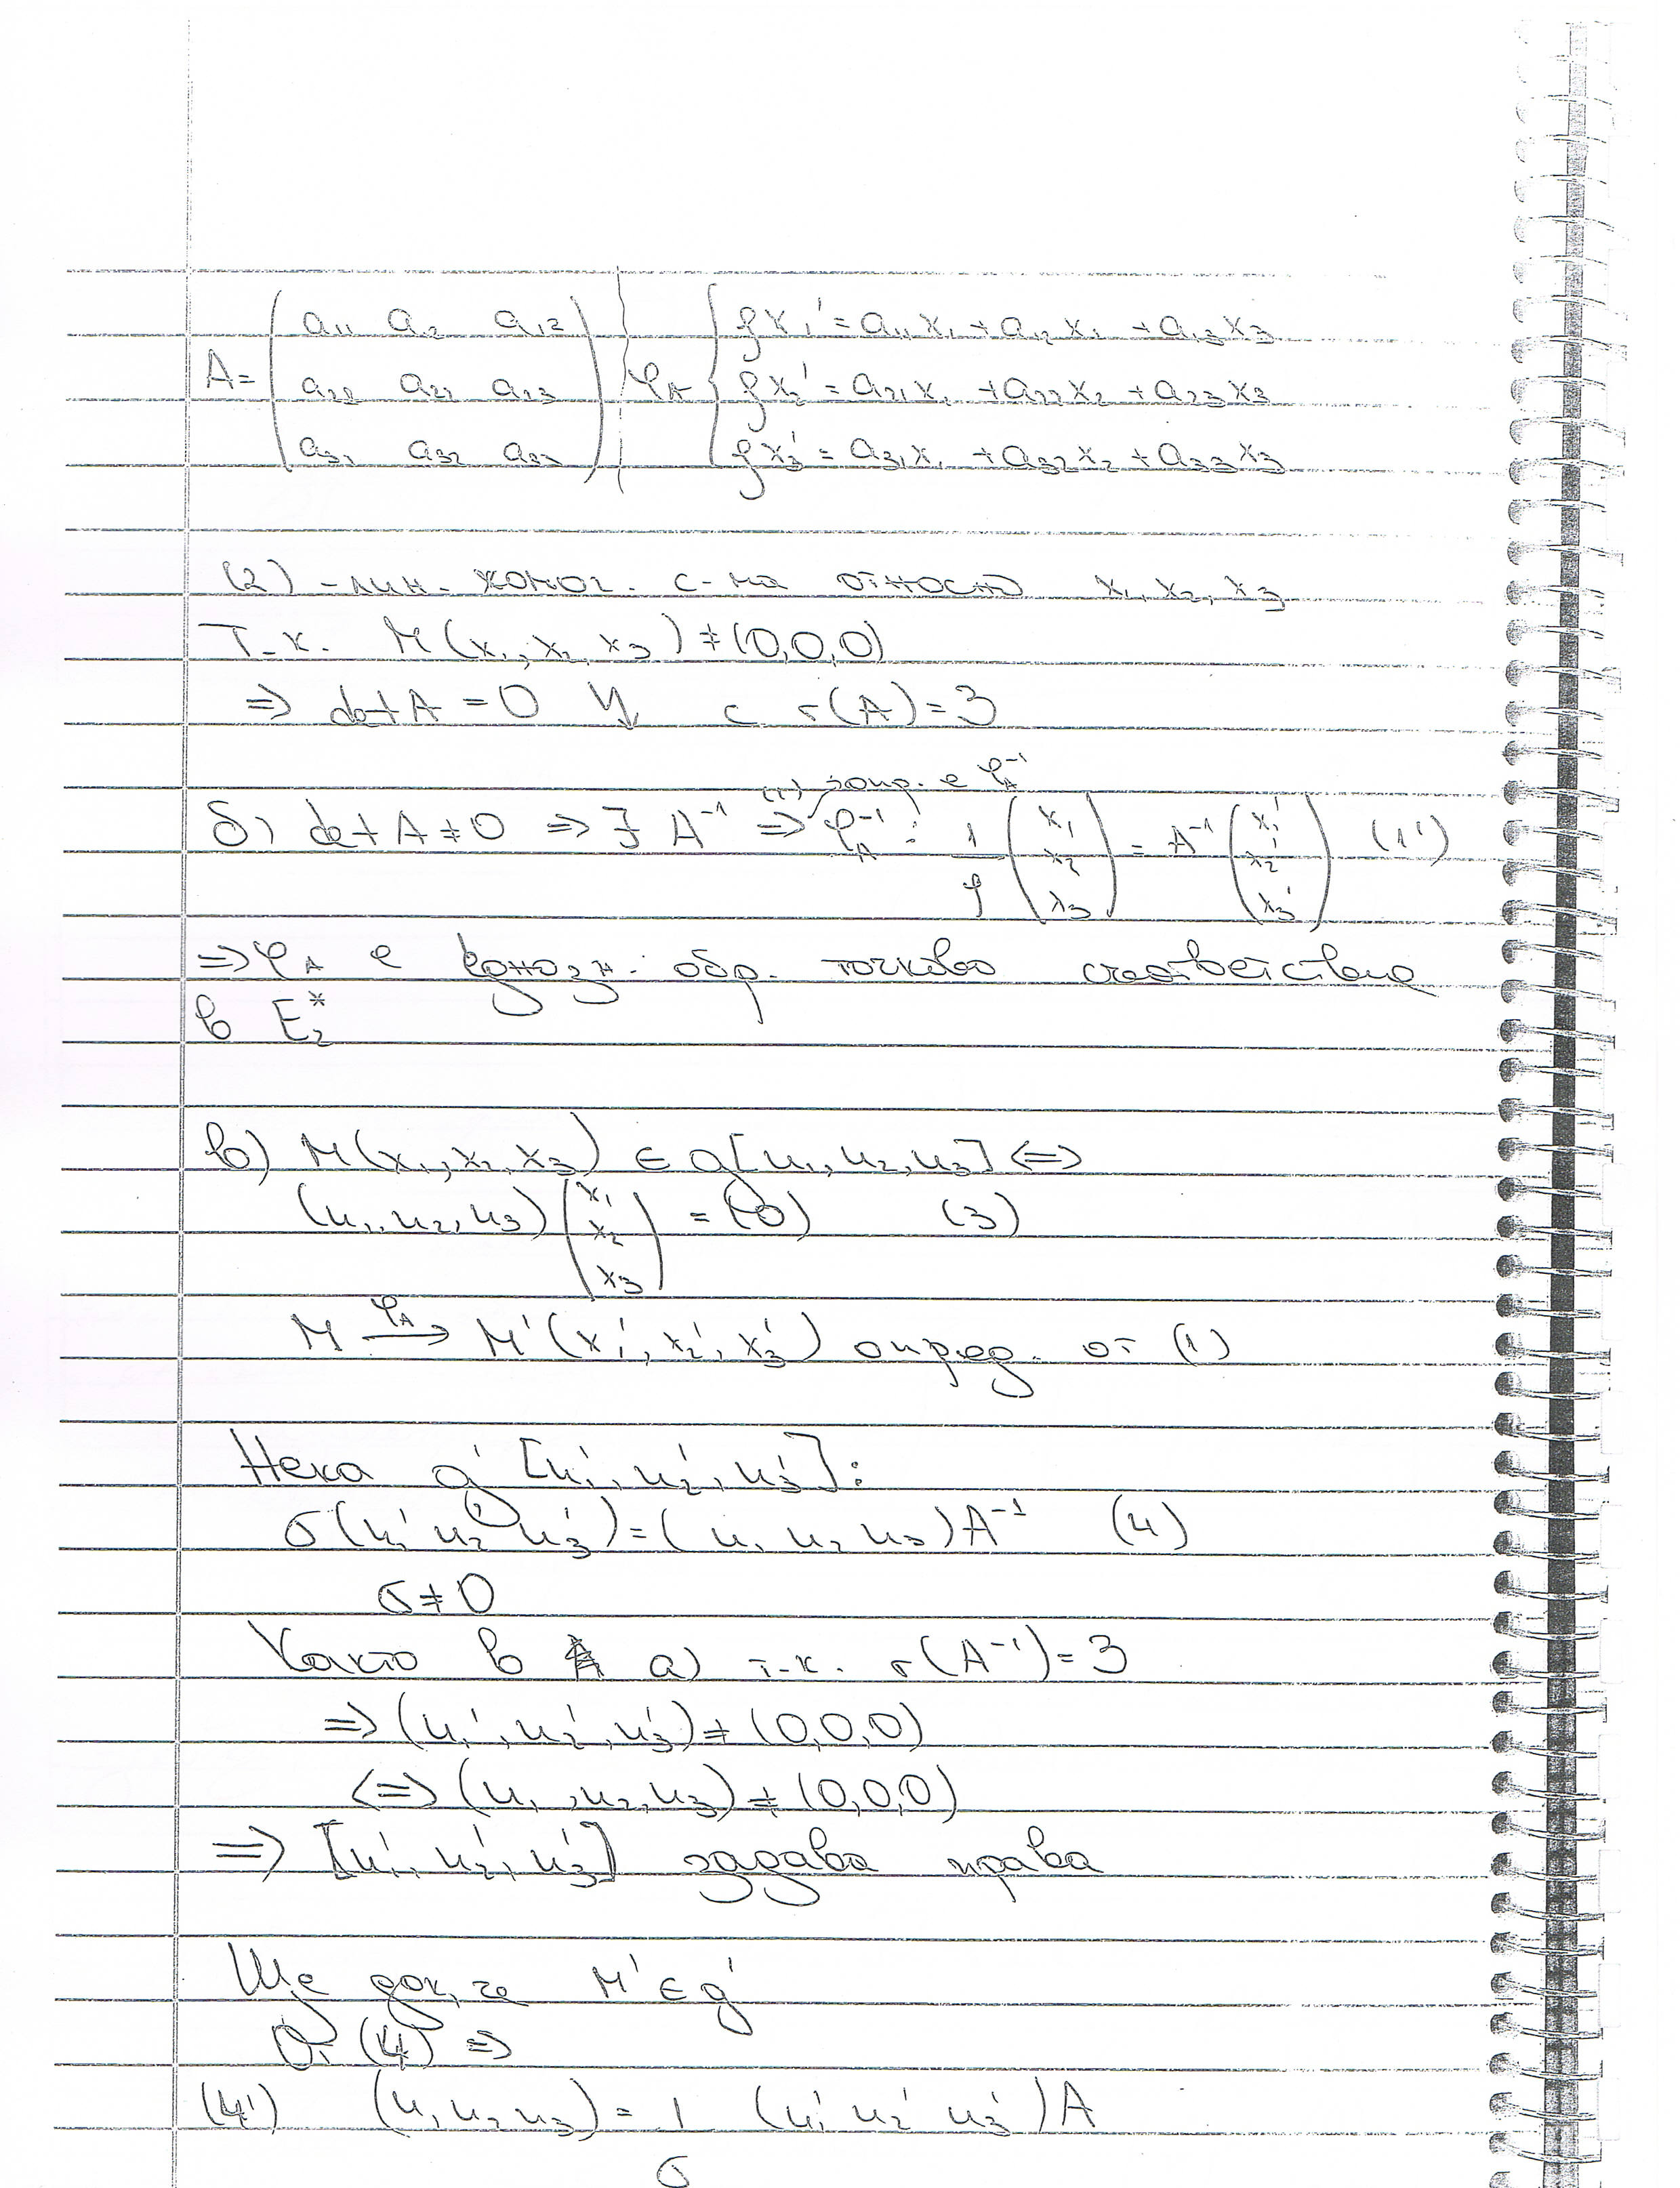 A = ( a₁₁ a₁₂ a₁₂ ) φ_A { ρx₁' = a₁₁x₁ + a₁₂x₂ + a₁₃x₃
( a₂₂ a₂₂ a₂₃ ) ρx₂' = a₂₁x₁ + a₂₂x₂ + a₂₃x₃
( a₃₁ a₃₂ a₃₃ ) ρx₃' = a₃₁x₁ + a₃₂x₂ + a₃₃x₃
(2) - лин. хомог. с-ма относно x₁, x₂, x₃
Т.к. M(x₁, x₂, x₃) ≠ (0,0,0)
⇒ det A = 0 ↯ с r(A) = 3
(1) φ_A⁻¹
б) det A ≠ 0 ⇒ ∃ A⁻¹ ⇒ φ_A⁻¹ : 1/ρ (x₁ x₂ x₃) = A⁻¹ (x₁' x₂' x₃') (1')
⇒ φ_A е еднозн. обр. точково съответствие
в E₂*
в) M(x₁, x₂, x₃) ∈ g[u₁, u₂, u₃] ⇔
(u₁, u₂, u₃) (x₁ x₂ x₃) = (0) (3)
M —φ_A→ M'(x₁', x₂', x₃') опред. от (1)
Нека g' [u₁', u₂', u₃']:
σ(u₁' u₂' u₃') = (u₁ u₂ u₃)A⁻¹ (4)
σ ≠ 0
Както в а) т.к. r(A⁻¹) = 3
⇒ (u₁', u₂', u₃') ≠ (0,0,0)
⇔ (u₁, u₂, u₃) ≠ (0,0,0)
⇒ [u₁', u₂', u₃'] задава права
Ще док, че M' ∈ g'
От (4) ⇒
(4') (u₁ u₂ u₃) = 1/σ (u₁' u₂' u₃')A